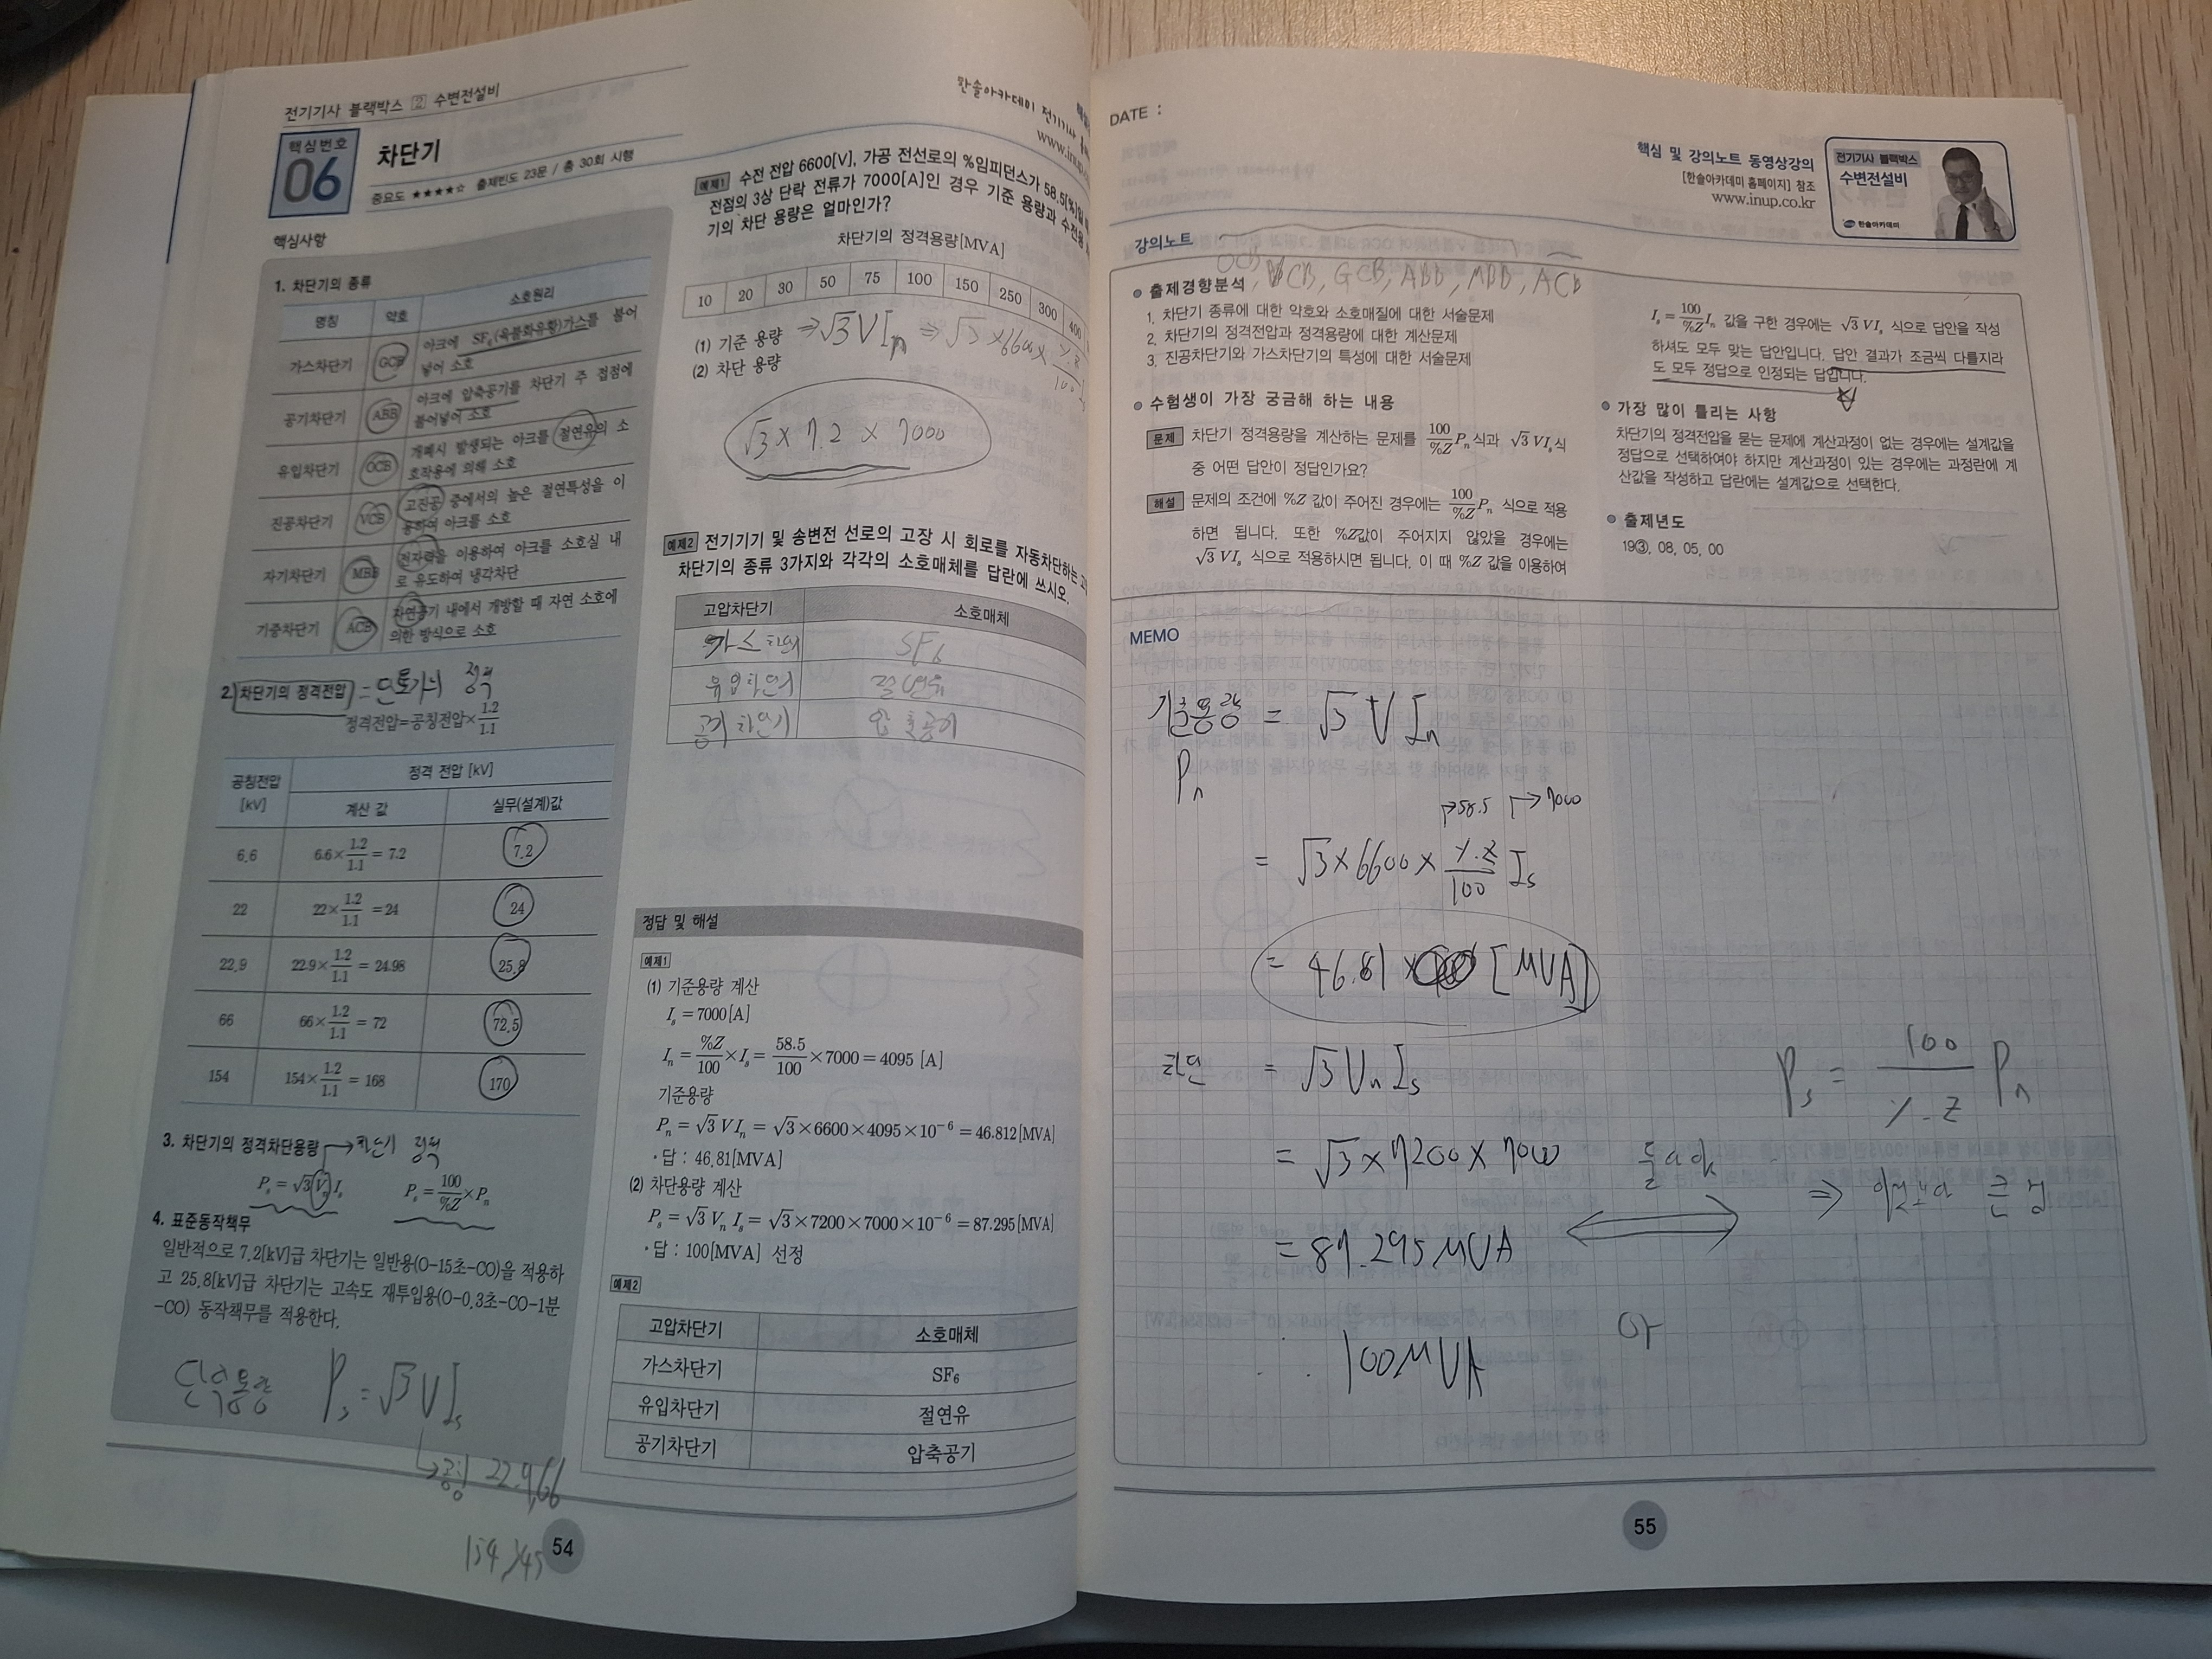 전기기사 블랙박스 ② 수변전설비
핵심번호
06
차단기
중요도 ★★★★☆ 출제빈도 23문 / 총 30회 시행
핵심사항
1. 차단기의 종류
명칭 약호 소호원리
가스차단기 GCB 아크에 SF₆(육불화유황)가스를 불어
넣어 소호
공기차단기 ABB 아크에 압축공기를 차단기 주 접점에
불어넣어 소호
유입차단기 OCB 개폐시 발생되는 아크를 절연유의 소
호작용에 의해 소호
진공차단기 VCB 고진공 중에서의 높은 절연특성을 이
용하여 아크를 소호
자기차단기 MBB 전자력을 이용하여 아크를 소호실 내
로 유도하여 냉각차단
기중차단기 ACB 자연공기 내에서 개방할 때 자연 소호에
의한 방식으로 소호
2. 차단기의 정격전압 = 정격
정격전압=공칭전압×1.2/1.1
공칭전압 [kV] 정격 전압 [kV]
계산 값 실무(설계)값
6.6 6.6×1.2/1.1 = 7.2 7.2
22 22×1.2/1.1 = 24 24
22.9 22.9×1.2/1.1 = 24.98 25.8
66 66×1.2/1.1 = 72 72.5
154 154×1.2/1.1 = 168 170
3. 차단기의 정격차단용량 → 차단기 정격
Ps = √3 Vn Is Ps = 100/%Z × Pn
4. 표준동작책무
일반적으로 7.2[kV]급 차단기는 일반용(O-15초-CO)을 적용하
고 25.8[kV]급 차단기는 고속도 재투입용(O-0.3초-CO-1분
-CO) 동작책무를 적용한다.
단락용량 Ps = √3 V Is
↳ 공칭 22.9, 66
154, 345
54
한솔아카데미 전기기사
www.inup
예제1 수전 전압 6600[V], 가공 전선로의 %임피던스가 58.5[%]일
전점의 3상 단락 전류가 7000[A]인 경우 기준 용량과 수전용
기의 차단 용량은 얼마인가?
차단기의 정격용량[MVA]
10 20 30 50 75 100 150 250 300 400
(1) 기준 용량 ⇒ √3 V In ⇒ √3 × 6600 × %Z/100 Is
(2) 차단 용량
√3 × 7.2 × 7000
예제2 전기기기 및 송변전 선로의 고장 시 회로를 자동차단하는
차단기의 종류 3가지와 각각의 소호매체를 답란에 쓰시오.
고압차단기 소호매체
가스차단기 SF6
유입차단기 절연유
공기차단기 압축공기
정답 및 해설
예제1
(1) 기준용량 계산
Is = 7000[A]
In = %Z/100 × Is = 58.5/100 × 7000 = 4095 [A]
기준용량
Pn = √3 V In = √3 × 6600 × 4095 × 10⁻⁶ = 46.812[MVA]
· 답 : 46.81[MVA]
(2) 차단용량 계산
Ps = √3 Vn Is = √3 × 7200 × 7000 × 10⁻⁶ = 87.295[MVA]
· 답 : 100[MVA] 선정
예제2
고압차단기 소호매체
가스차단기 SF₆
유입차단기 절연유
공기차단기 압축공기
DATE :
핵심 및 강의노트 동영상강의
[한솔아카데미 홈페이지] 참조
www.inup.co.kr
전기기사 블랙박스
수변전설비
한솔아카데미
강의노트
OCB, VCB, GCB, ABB, MBB, ACB
● 출제경향분석
1. 차단기 종류에 대한 약호와 소호매질에 대한 서술문제
2. 차단기의 정격전압과 정격용량에 대한 계산문제
3. 진공차단기와 가스차단기의 특성에 대한 서술문제
● 수험생이 가장 궁금해 하는 내용
문제 차단기 정격용량을 계산하는 문제를 100/%Z Pn 식과 √3 VIs 식
중 어떤 답안이 정답인가요?
해설 문제의 조건에 %Z 값이 주어진 경우에는 100/%Z Pn 식으로 적용
하면 됩니다. 또한 %Z값이 주어지지 않았을 경우에는
√3 VIs 식으로 적용하시면 됩니다. 이 때 %Z 값을 이용하여
Is = 100/%Z In 값을 구한 경우에는 √3 VIs 식으로 답안을 작성
하셔도 모두 맞는 답안입니다. 답안 결과가 조금씩 다를지라
도 모두 정답으로 인정되는 답입니다.
● 가장 많이 틀리는 사항
차단기의 정격전압을 묻는 문제에 계산과정이 없는 경우에는 설계값을
정답으로 선택하여야 하지만 계산과정이 있는 경우에는 과정란에 계
산값을 작성하고 답란에는 설계값으로 선택한다.
● 출제년도
19③, 08, 05, 00
MEMO
기준용량 = √3 V In
Pn
→58.5 →7000
= √3 × 6600 × %Z/100 Is
= 46.81 × [MVA]
차단 = √3 Vn Is
Ps = 100/%Z Pn
= √3 × 7200 × 7000
⇒ 이것보다 큰 것
= 87.295 MVA
or
∴ 100 MVA
55